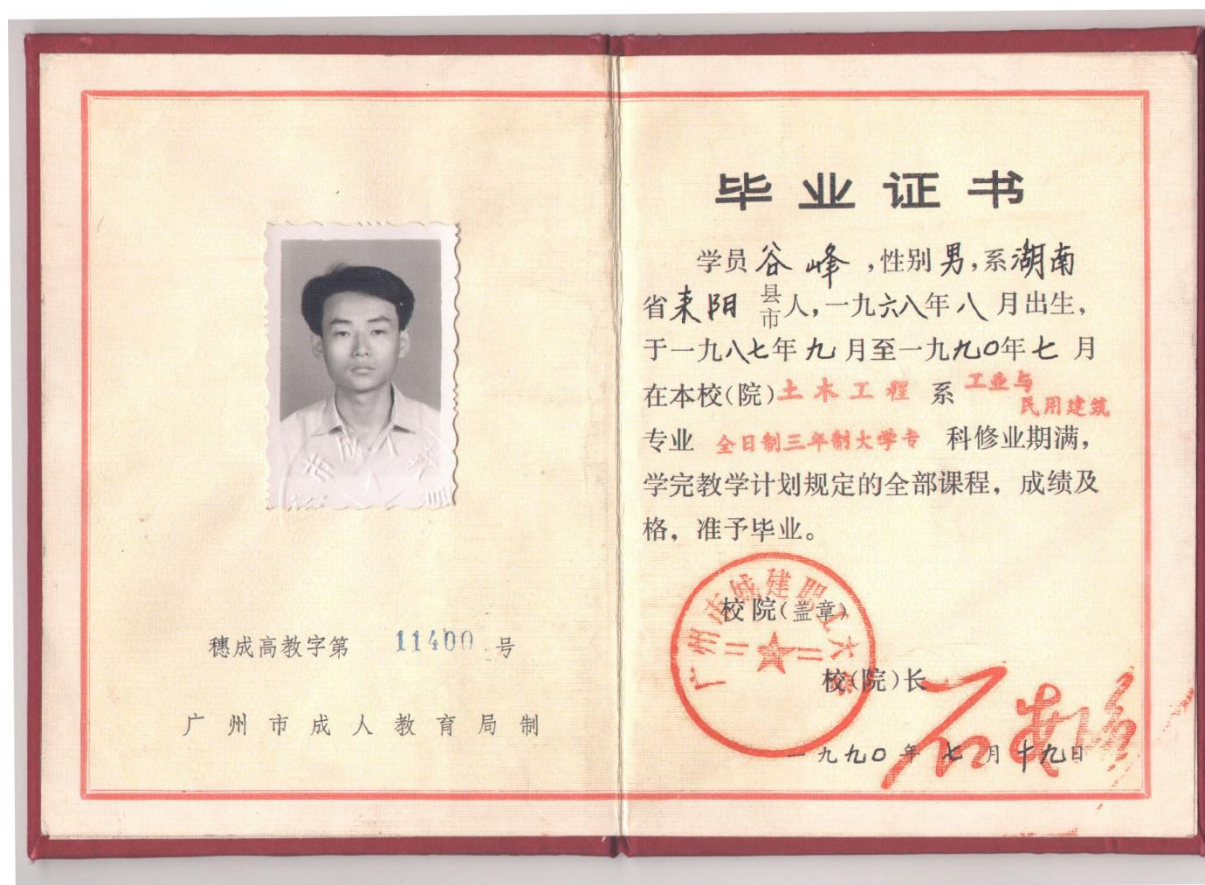 穗成高教字第 11400 号
广州市成人教育局制
毕业证书
学员谷峰,性别男,系湖南
省耒阳 县市人,一九六八年八月出生,
于一九八七年九月至一九九〇年七月
在本校(院)土木工程系 工业与民用建筑
专业 全日制三年制大学专 科修业期满,
学完教学计划规定的全部课程, 成绩及
格, 准予毕业。
广州市城建职工大学
校院(盖章)
校(院)长
一九九〇年七月十九日